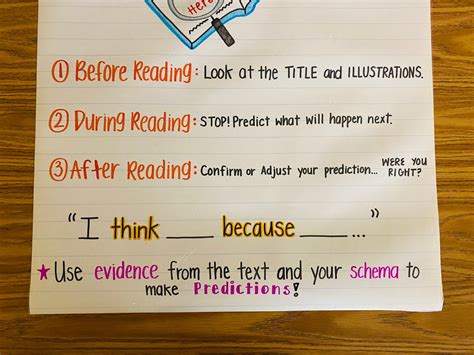 Hero
① Before Reading: Look at the TITLE and ILLUSTRATIONS.
② During Reading: STOP! Predict what will happen next.
③ After Reading: Confirm or Adjust your prediction... WERE YOU RIGHT?
"I think ____ because ____..."
★ Use evidence from the text and your schema to
make Predictions!